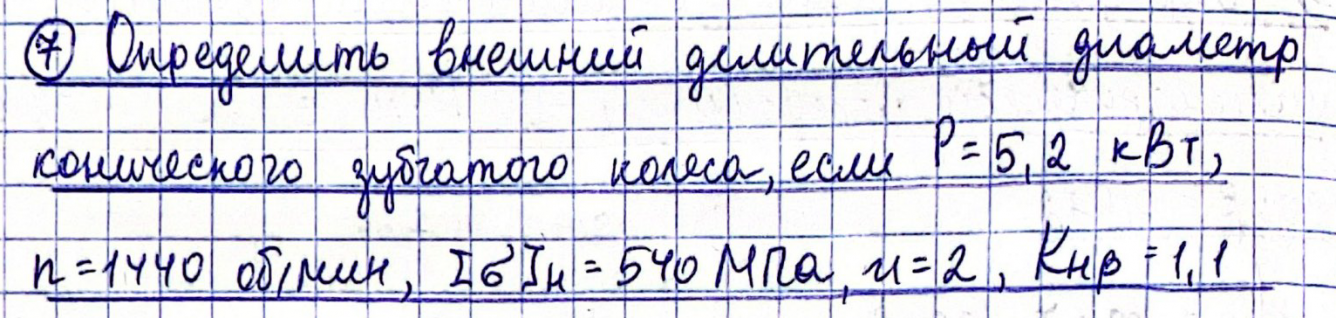 ⑦ Определить внешний делительный диаметр
конического зубчатого колеса, если P = 5,2 кВт,
n = 1440 об/мин, [σ]н = 540 МПа, u = 2, Kнβ = 1,1